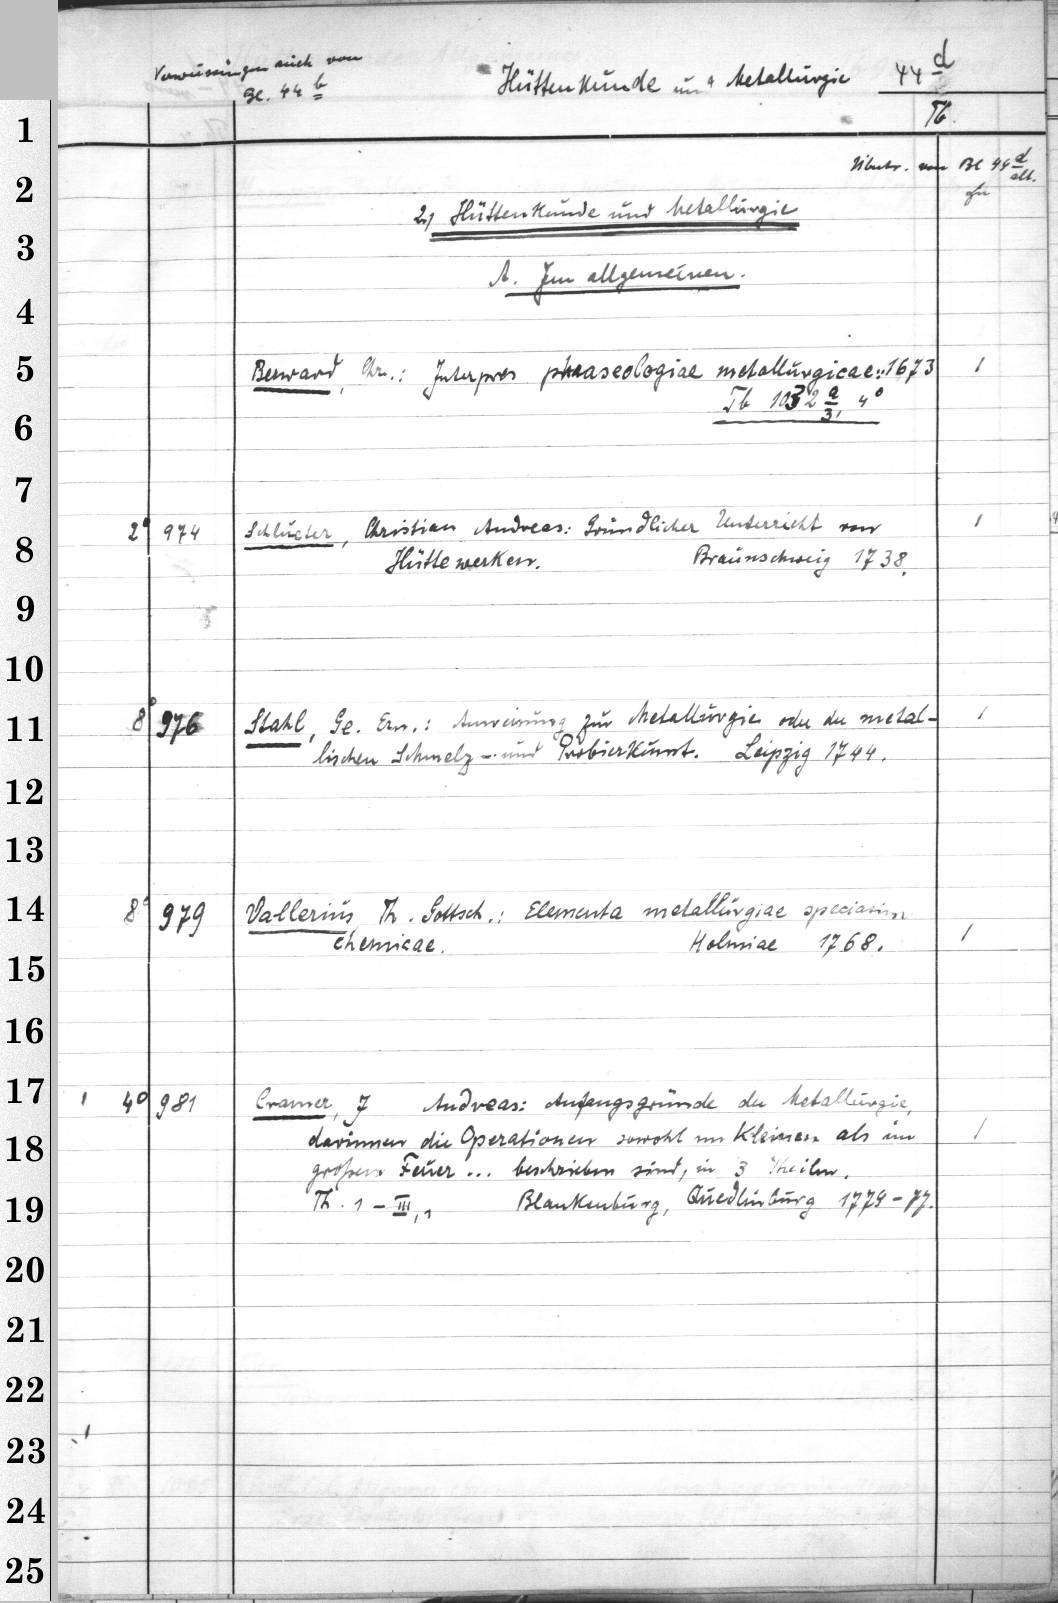 Verweisungen auch von
Bl. 44 b
Hüttenkunde und Metallurgie 44 d
Tb.
Übertr. von Bl 44 d
alt.
2.) Hüttenkunde und Metallurgie
A. Im allgemeinen.
Berward, Chr.: Interpres phraseologiae metallurgicae. 1673 1
Tb 1032 a/3, 4°
2° 974 Schlüter, Christian Andreas: Gründlicher Unterricht von 1
Hüttewerken. Braunschweig 1738.
8° 976 Stahl, Ge. Ern.: Anweisung zur Metallurgie oder der metal- 1
lischen Schmelz- und Probierkunst. Leipzig 1744.
8° 979 Vallerius, Th. Gottsch.: Elementa metallurgiae speciatim
chemicae. Holmiae 1768. 1
1 4° 981 Cramer, J Andreas: Anfangsgründe der Metallurgie,
darinnen die Operationen sowohl im Kleinen als im 1
großen Feuer ... beschrieben sind, in 3 Theilen.
Th. 1 - III,1 Blankenburg, Quedlinburg 1774-77.
1
2
3
4
5
6
7
8
9
10
11
12
13
14
15
16
17
18
19
20
21
22
23
24
25